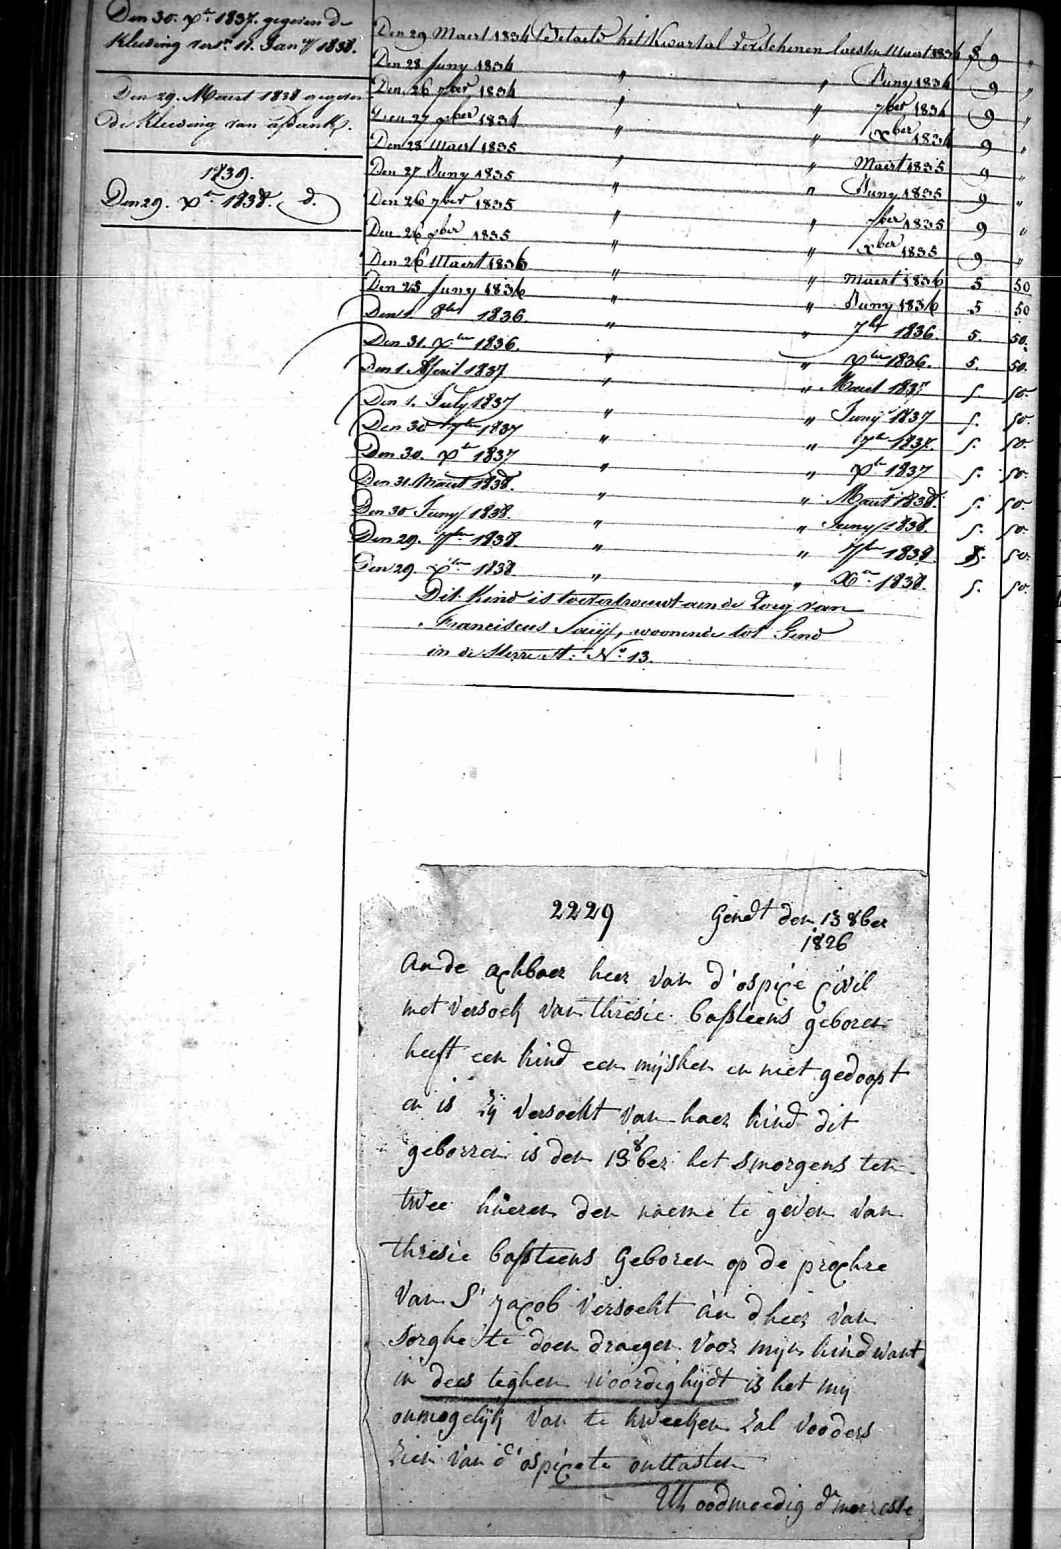 Den 30. Xbr 1837. gegeven de
Kleeding vert. 11. Jany 1838.
Den 29. Maert 1838 gegeven
de Kleeding van afdank.
1839.
Den 29. Xbr 1838. d.
Den 29 Maert 1834 Betaeld het Kwartal verschenen laesten Maert 1834 f 9 "
Den 28 Juny 1834 " " Juny 1834 9 "
Den 26 7ber 1834 " " 7ber 1834 9 "
Den 27 xber 1834 " " Xber 1834 9 "
Den 28 Maert 1835 " " Maert 1835 9 "
Den 27 Juny 1835 " " Juny 1835 9 "
Den 26 7ber 1835 " " 7ber 1835 9 "
Den 26 xber 1835 " " Xber 1835 9 "
Den 26 Maert 1836 " " Maert 1836 5 50
Den 25 Juny 1836 " " Juny 1836 5 50
Den 1. 8br 1836. " " 7br 1836. 5. 50.
Den 31. Xber 1836. " " Xber 1836. 5. 50.
Den 1. April 1837 " " Maert 1837 5 50.
Den 1. July 1837 " " Juny 1837 5. 50.
Den 30 7br 1837 " " 7br 1837. 5. 50.
Den 30. Xbr 1837 " " Xbr 1837 5. 50.
Den 31. Maert 1838. " " Maert 1838. 5. 50.
Den 30 Juny 1838. " " Juny 1838. 5. 50.
Den 29. 7ber 1838. " " 7ber 1838 5. 50.
Den 29 Xber 1838 " " Xbr 1838. 5. 50.
Dit Kind is toevertrouwt aen de Zorg van
Franciscus woonende tot Gend
in de Sterre St. No 13.
2229 Gendt den 13 8ber
1826
An de achbaer heer van d'ospice Civil
met versoek van thresie Cassteens geboren
heeft een kind een mijsken en niet gedoopt
en is zy versoekt van haer kind dit
geborren is den 13 8ber het smorgens ten
twee hueren den naeme te geven van
thresie Cassteens Geboren op de prochre
van St Jacob versoekt an dheer van
sorghe te doen draegen voor myn kind want
in dees teghen woordighijdt is het my
onmogelijk van te kweeken zal vooders
zien van d'ospice te onttasten
Uh oodmoedig